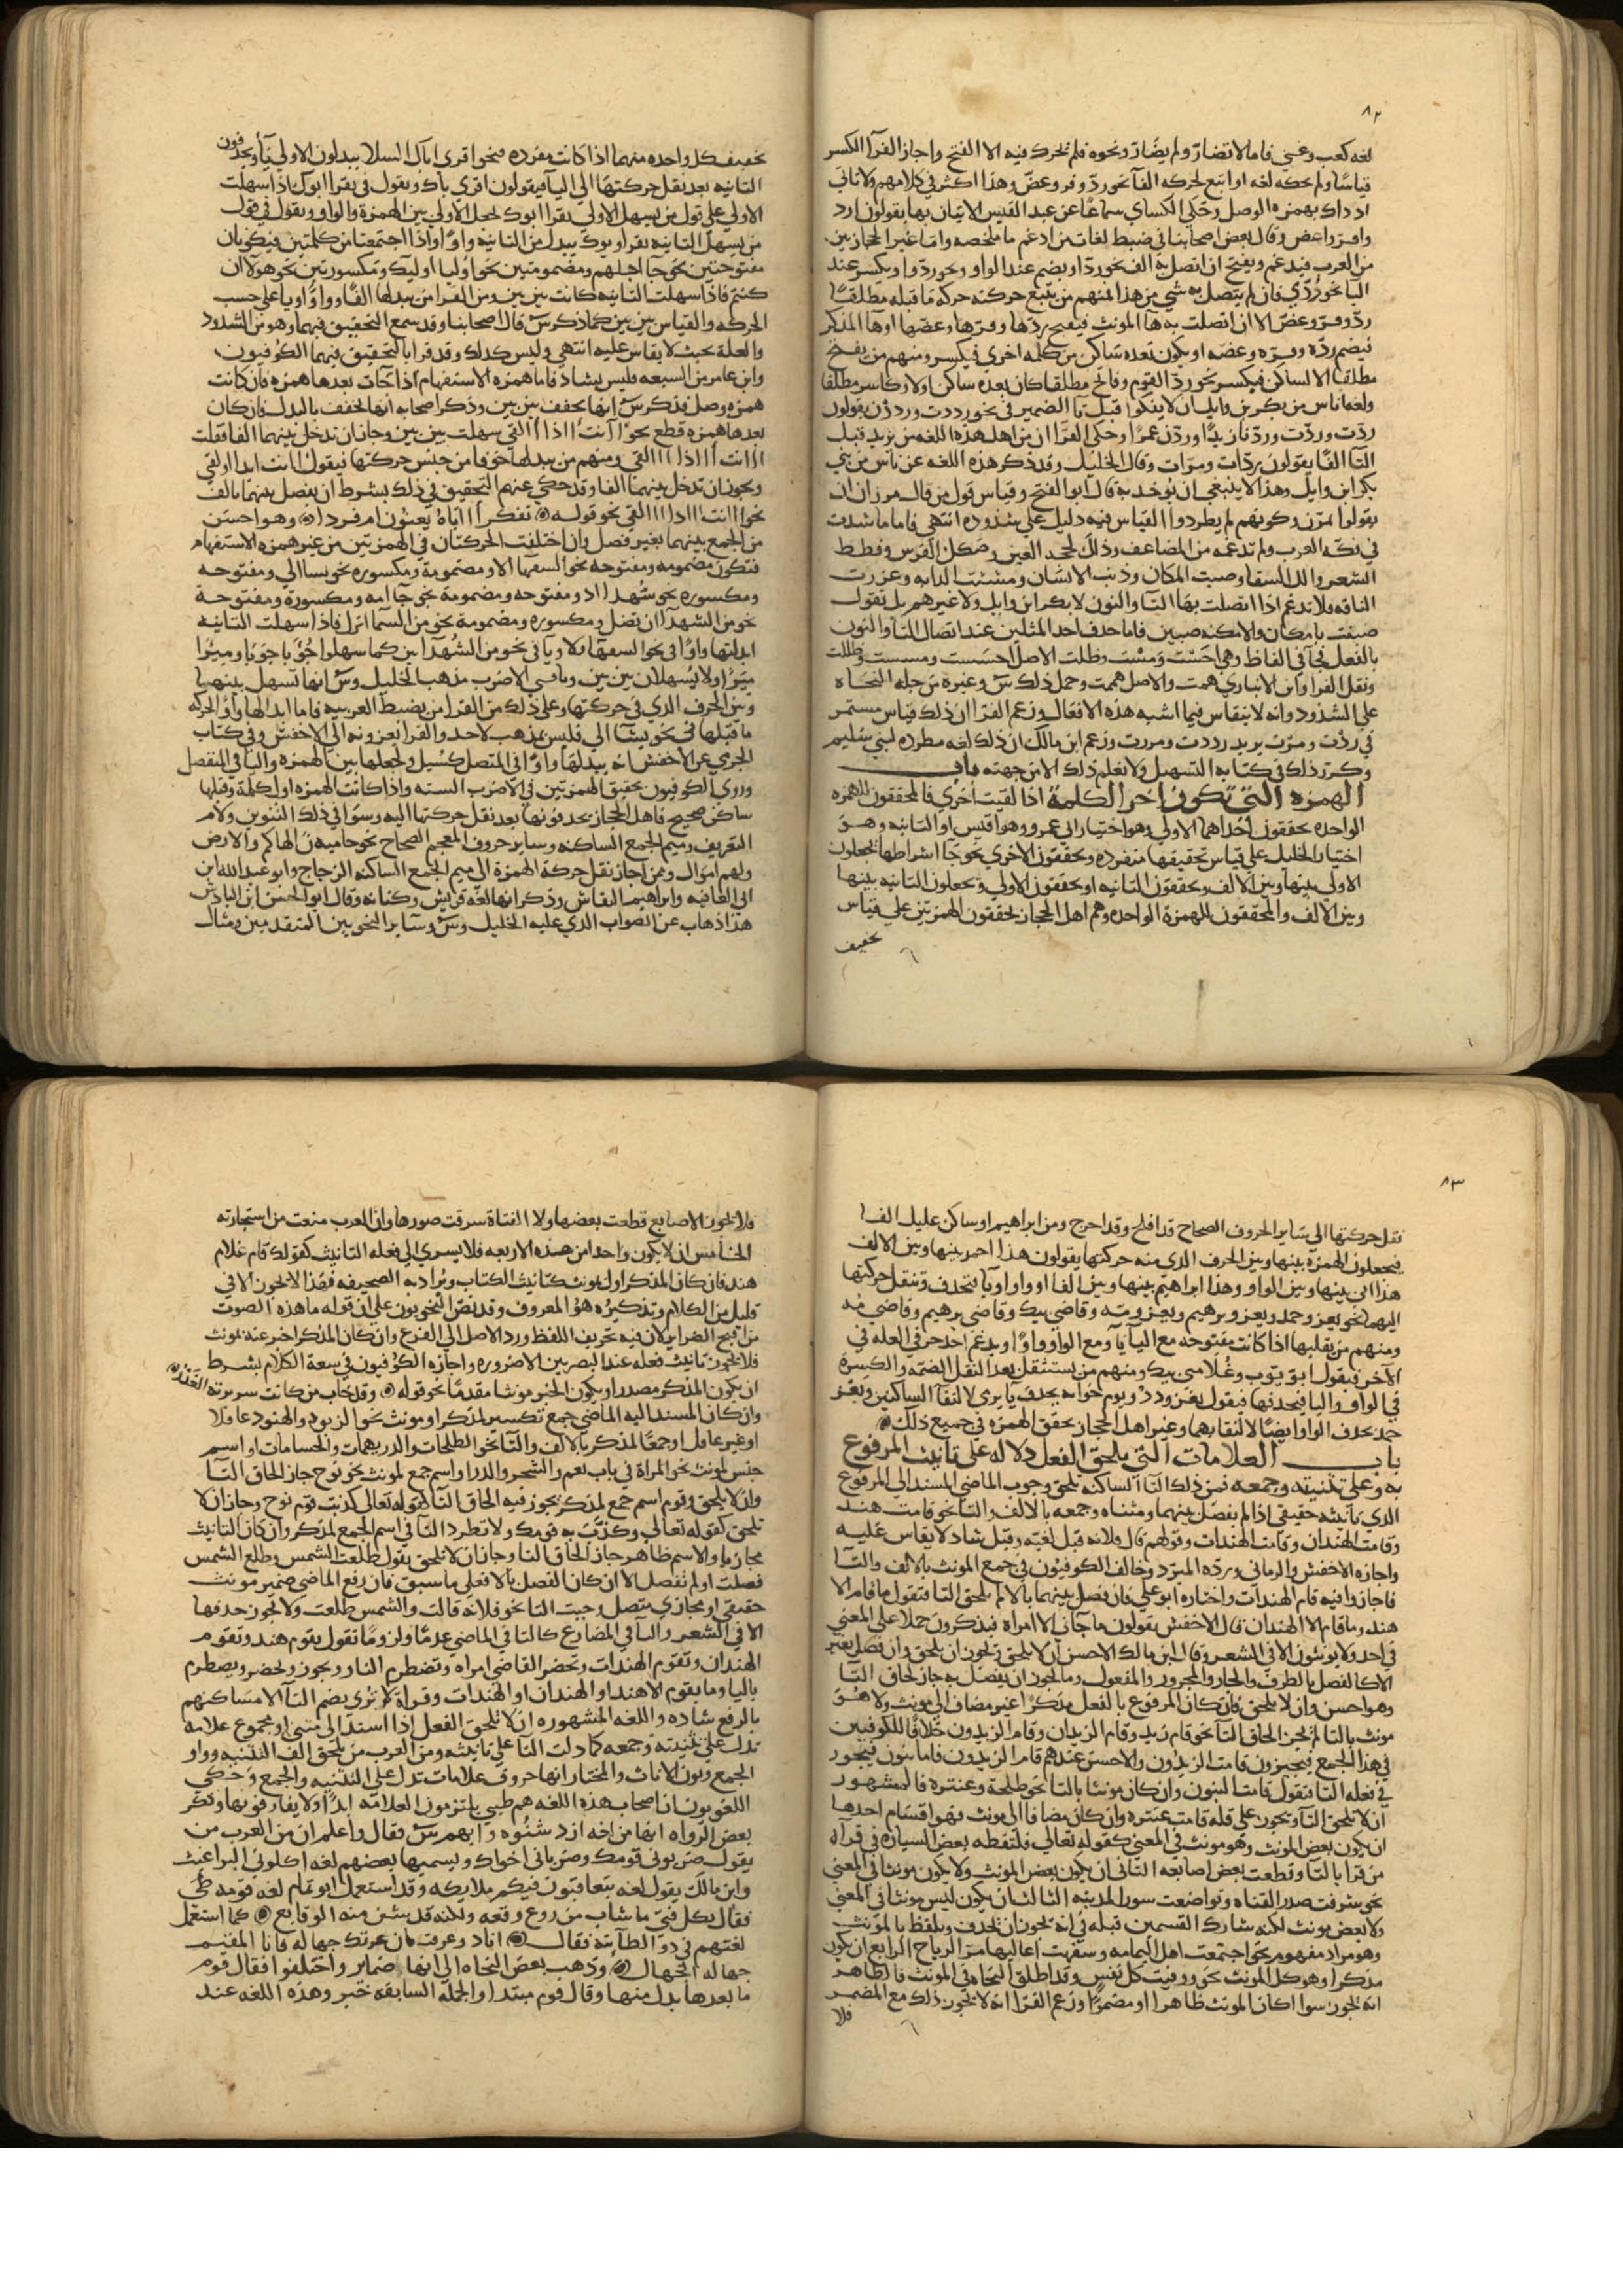 ٨٢
لغه كعب وغني فاما لا تضار ولم يضار ونحوه فلم تحرك فيه الا الفتح واجاز الفرا الكسر
قياسا ولم يحكه لغه او اتبع لحركه الفا نحو رد وفر وعض وهذا اكثر في كلامهم ولا تاتي
اذ ذاك بهمزه الوصل وحكى الكساي سماعا عن عبد القيس الاتيان بها يقولون ارد
وافر واعض وقال بعض اصحابنا في ضبط لغات من ادغم ما ملخصه واما غير الحجازيين
من العرب فيدغم ويفتح ان اتصل به الف نحو ردا ويضم عند الواو نحو ردوا ويكسر عند
اليا نحو ردي فان لم يتصل به شي من هذا فمنهم من يتبع حركته حركه ما قبله مطلقا
رد وفر وعض الا ان اتصلت به ها المونث فيفتح ردها وفرها وعضها او ها المذكر
فيضم رده وفره وعضه او يكون بعده ساكن من كلمه اخرى فيكسر ومنهم من يفتح
مطلقا الا لساكن فيكسر نحو رد القوم وفاتح مطلقا كان بعده ساكن اولا وكاسر مطلقا
ولغه اناس من بكر بن وايل ان لا يفكوا قبل تا الضمير في نحو رددت ورددن يقولون
ردت وردت وردنا زيدا وردن عمرا وحكى الفرا ان من اهل هذه اللغه من يزيد قبل
التا الفا يقولون ردات ومرات وقال الخليل وقد ذكر هذه اللغه عن ناس من بني
بكر ابن وايل وهذا لا ينبغي ان يوخذ به قال ابو الفتح وقياس قول من قال مرن ان
يقولوا امرن وكونهم لم يطردوا القياس فيه دليل على شذوذه انتهى فاما ما شذت
في فكه العرب ولم تدغمه من المضاعف وذلك لححت العين وصكك الفرس وقطط
الشعر والل السقا وضبب المكان وذبب الانسان ومششت الدابه وعززت
الناقه فلا تدغم اذا اتصلت بها التا والنون لا بكر ابن وايل ولا غيرهم بل تقول
ضببت يا مكان والامكنه ضببن فاما حذف احد المثلين عند اتصال التا والنون
بالفعل فجا في الفاظ وهي احست ومست وظلت الاصل احسست ومسست وظللت
ونقل الفرا وابن الانباري همت والاصل هممت وحمل ذلك س وغيره من جله النحاه
على الشذوذ وانه لا ينقاس فيما اشبه هذه الافعال وزعم الفرا ان ذلك قياس مستمر
في ردت ومرت يريد رددت ومررت وزعم ابن مالك ان ذلك لغه مطرده لبني سليم
وكرر ذلك في كتابه التسهيل ولا نعلم ذلك الا من جهته باب
الهمزه التي تكون اخر الكلمة اذا لقيت اخرى فالمحققون للهمزه
الواحده يحققون احداهما الاولى وهو اختيار ابي عمرو وهو اقيس او الثانيه وهو
اختيار الخليل على قياس تحقيقها منفرده ويخففون الاخرى نحو جا اشراطها فيجعلون
الاولى بينها وبين الالف ويحققون الثانيه او يحققون الاولى ويجعلون الثانيه بينها
وبين الالف والمخففون للهمزة الواحده وهم اهل الحجاز يخففون الهمزتين على قياس
تخفيف
تخفيف كل واحده منهما اذا كانت مفرده فنحو اقرى اباك السلا يبدلون الاولى يا ويحذفون
الثانيه بعد نقل حركتها الى اليا فيقولون اقري باك ويقول في يقرا ابوك اذا سهلت
الاولى على قول من يسهل الاولى يقرا ابوك تجعل الاولى بين الهمزة والواو ويقول في قول
من يسهل الثانيه يقرا وبوك يبدل من الثانيه واوا واذا اجتمعتا من كلمتين فيكونان
مفتوحتين نحو جا اجلهم ومضمومتين نحو اوليا اوليك ومكسورتين نحو هولا ان
كنتم فاذا سهلت الثانيه كانت بين بين ومن القرا من يبدلها الفا وواوا ويا على حسب
الحركه والقياس بين بين كما ذكر س قال اصحابنا وقد سمع التحقيق فيهما وهو من الشذوذ
والعلة بحيث لا يقاس عليه انتهى وليس كذلك وقد قرا بالتحقيق فيهما الكوفيون
وابن عامر من السبعه فليس بشاذ فاما همزه الاستفهام اذا جات بعدها همزه فان كانت
همزه وصل فذكر س انها تخفف بين بين وذكر اصحابه انها تخفف بالبدل فان كان
بعدها همزه قطع نحو اانت ااذا االقي سهلت بين بين وجاز ان تدخل بينهما الفا فقلت
اانت ااذا االقي ومنهم من يبدلها حرفا من جنس حركتها فيقول اانت ايذا اولقي
ويجوز ان تدخل بينهما الفا وقد حكي عنهم التحقيق في ذلك بشرط ان يفصل بينهما بالف
نحو اانت ااذا االقي نحو قوله تفكر اااياه يعنون ام قردا وهو احسن
من الجمع بينهما بغير فصل وان اختلفت الحركتان في الهمزتين من غير همزه الاستفهام
فتكون مضمومه ومفتوحه نحو السفها الا ومضمومة ومكسوره نحو يشا الي ومفتوحه
ومكسوره نحو شهدا اذ ومفتوحه ومضمومة نحو جا امه ومكسورة ومفتوحة
نحو من الشهدا ان تضل ومكسوره ومضمومة نحو من السما انزل فاذا سهلت الثانيه
ابدلتها واوا في نحو السفها ولا ويا في نحو من الشهدا ين كما سهلوا جونا جونا وميرا
ميرا ولا يسهلان بين بين وباقي الاضرب مذهب الخليل وس انها تسهل بينها
وبين الحرف الذي في حركتها وعلى ذلك من القرا من يضبط العربيه فاما ابدالها واوا لحركه
ما قبلها في نحو يشا الي فليس مذهب لاحد والقرا يعزونه الى الاخفش وفي كتاب
الجرمي عن الاخفش انه يبدلها واوا في المتصل كسيل وتجعلها بين الهمزه واليا في المنفصل
وروى الكوفيون تحقيق الهمزتين في الاضرب السته واذا كانت الهمزه اول كلمة وقبلها
ساكن صحيح فاهل الحجاز يحذفونها بعد نقل حركتها اليه وسوا في ذلك التنوين ولام
التعريف وميم الجمع الساكنه وساير حروف المعجم الصحاح نحو حاميه الهاكم والارض
ولهم اموال ومن اجاز نقل حركة الهمزة الى ميم الجمع الساكنه الزجاج وابو عبد الله ابن
ابي العافيه وابراهيم النقاش وذكر انها لغه قريش وكنانه وقال ابو الحسن ابن الباذش
هذا ذهاب عن الصواب الذي عليه الخليل وس وساير النحويين المتقدمين ومثال
٨٣
نقل حركتها الى ساير الحروف الصحاح قد افلح وقد احرج ومن ابراهيم او ساكن عليل الفا
فيجعلون الهمزة بينها وبين الحرف الذي منه حركتها يقولون هذا احمد بينها وبين الالف
هذا ابي بينها وبين الواو وهذا ابراهيم بينها وبين الفا او واوا ويا فتحذف وتنقل حركتها
اليهما نحو يغز وحمد ويغزو برهيم ويغزو مه وقاضي بيك وقاضي برهيم وقاضي مه
ومنهم من يقلبها اذا كانت مفتوحه مع اليا يا ومع الواو واوا ويدغم احد حرفي العله في
الاخر فيقول ابو يوب وغلامي بيك ومنهم من يستثقل بعد النقل الضمه والكسرة
في الواو واليا فيحذفها فيقول يغز ودد ويرم خوانه بحذف يا يرمي لالتقا الساكنين ويغز
حمد بحذف الواو ايضا لالتقايهما وغير اهل الحجاز يحقق الهمزه في جميع ذلك
باب العلامات التي تلحق الفعل دلاله على تانيث المرفوع
به وعلى تثنيته وجمعه فمن ذلك التا الساكنه تلحق وجوب الماضي المسند الى المرفوع
الذي تانيثه حقيقي اذا لم يفصل بينهما ومثناه وجمعه بالالف والتا نحو قامت هند
وقامت الهندان وقامت الهندات وقولهم قال فلانه قيل لغيه وقيل شاذ لا يقاس عليه
واجازه الاخفش والرماني ورده المبرد وخالف الكوفيون في جمع المونث بالالف والتا
فاجازوا فيه قام الهندات واختاره ابو علي فان فصل بينهما بالا لم تلحق التا فتقول ما قام الا
هند وما قام الا الهندان قال الاخفش يقولون ما جاني الا امراه فيذكرون حملا على المعنى
في احد ولا يونثون الا في الشعر وقال ابن مالك الاحسن ان لا تلحق ويجوز ان تلحق وان فصل بغير
الا كالفصل بالظرف والجار والمجرور والمفعول وما يجوز ان يفصل به جاز لحاق التا
وهو احسن وان لا تلحق فان كان المرفوع بالفعل مذكرا غير مضاف الى مونث ولا هو
مونث بالتا لم يجز الحاق التا نحو قام زيد وقام الزيدان وقام الزيدون خلافا للكوفيين
في هذا الجمع فيجيزون قامت الزيدون والاحسن عندهم قام الزيدون فاما بنون فيجوز
في فعله التا فتقول قامت البنون وان كان مونثا بالتا نحو طلحة وعنترة فالمشهور
ان لا تلحق التا ويجوز على قله قامت عنتره وان كان مضافا الى مونث فهو اقسام احدها
ان يكون بعض المونث وهو مونث في المعنى كقوله تعالى فلتقطه بعض السياره في قراه
من قرا بالتا وقطعت بعض اصابعه الثاني ان يكون بعض المونث ولا يكون مونثا في المعنى
نحو شرقت صدر القناه وتواضعت سور المدينه الثالث ان يكون ليس مونثا في المعنى
ولا بعض مونث لكنه شارك القسمين قبله في انه يجوز ان تحذف وتلفظ بالمونث
وهو مراد مفهوم نحو اجتمعت اهل اليمامه وسفهت اعاليها مر الرياح الرابع ان يكون
مذكرا وهو كل المونث نحو ووفيت كل نفس وقد اطلق النحاه في المونث فالظاهر
انه يجوز سوا كان المونث ظاهرا او مضمرا وزعم الفرا انه لا يجوز ذلك مع المضمر
فلا
فلا يجوز الاصابع قطعت بعضها ولا القناة سرقت صورها وان العرب منعت من استجازته
الخامس ان لا يكون واحدا من هذه الاربعه فلا يسري الى فعله التانيث كقولك قام غلام
هند فان كان المذكر اول بمونث كتانيث الكتاب ويراد به الصحيفه فهذا لا يجوز الا في
قليل من الكلام وتذكيره هو المعروف وقد نص النحويون على ان قوله ما هذه الصوت
من اقبح الضراير لان فيه تحريف اللفظ ورد الاصل الى الفرع وان كان المذكر اخبر عنه بمونث
فلا يجوز تانيث فعله عند البصريين الا ضروره واجازه الكوفيون في سعة الكلام بشرط
ان يكون المذكر مصدرا ويكون الخبر مونثا مقدما نحو قوله وقد خاب من كانت سريرته الغدر
وان كان المسند اليه الماضي جمع تكسير لمذكر او مونث نحو الزيود والهنود عاقلا
او غير عاقل او جمعا لمذكر بالالف والتا نحو الطلحات والدريهمات والحسامات او اسم
جنس لمونث نحو المراة في باب نعم والشجر والدر او اسم جمع لمونث نحو نوح جاز الحاق التا
وان لا تلحق وقوم اسم جمع لمذكر يجوز فيه الحاق التا كقوله تعالى كذبت قوم نوح وجاز ان لا
تلحق كقوله تعالى وكذب به قومك ولا تطرد التا في اسم الجمع لمذكر وان كان التانيث
مجازيا والاسم ظاهر جاز الحاق التا وجاز ان لا تلحق يقول طلعت الشمس وطلع الشمس
فصلت او لم تفصل الا ان كان الفصل بالا فعلى ما سبق فان رفع الماضي ضمير مونث
حقيقي او مجازي متصل وجبت التا نحو فلانه قالت والشمس طلعت ولا يجوز حذفها
الا في الشعر والتا في المضارع كالتا في الماضي عدما ولزوما تقول يقوم هند وتقوم
الهندان وتقوم الهندات وتحضر القاضي امراه وتضطرم النار ويجوز ويحضر ويضطرم
باليا وما يقوم الا هند او الهندان او الهندات وقراة لا ترى بضم التا الا مساكنهم
بالرفع شاذه واللغه المشهوره ان لا تلحق الفعل اذا اسند الى مثنى او مجموع علامه
تدل على تثنيته وجمعه كما دلت التا على تانيثه ومن العرب من يلحق الف التثنيه وواو
الجمع ونون الاناث والمختار انها حروف علامات تدل على التثنيه والجمع وحكى
اللغويون ان اصحاب هذه اللغه هم طيي يلتزمون العلامه ابدا ولا يفارقونها وذكر
بعض الرواه انها من اخه ازد شنوه وابهم س فقال واعلم ان من العرب من
يقول ضربوني قومك وضرباني اخواك ويسميها بعضهم لغه اكلوني البراغيث
وابن مالك يقول لغه يتعاقبون فيكم ملايكه وقد استعمل ابو تمام لغه قومه طي
فقال بكل فتى ما شاب من روع وقعه ولكنه قد شبن منه الوقايع كما استعمل
لغتهم في ذو الطاييه فقال انا ذو عرفت فان عرتك جهاله فانا المقيم
جهاله الجهال وذهب بعض النحاه الى انها ضماير واختلفوا فقال قوم
ما بعدها بدل منها وقال قوم مبتدا والجمله السابقه خبر وهذه اللغه عند